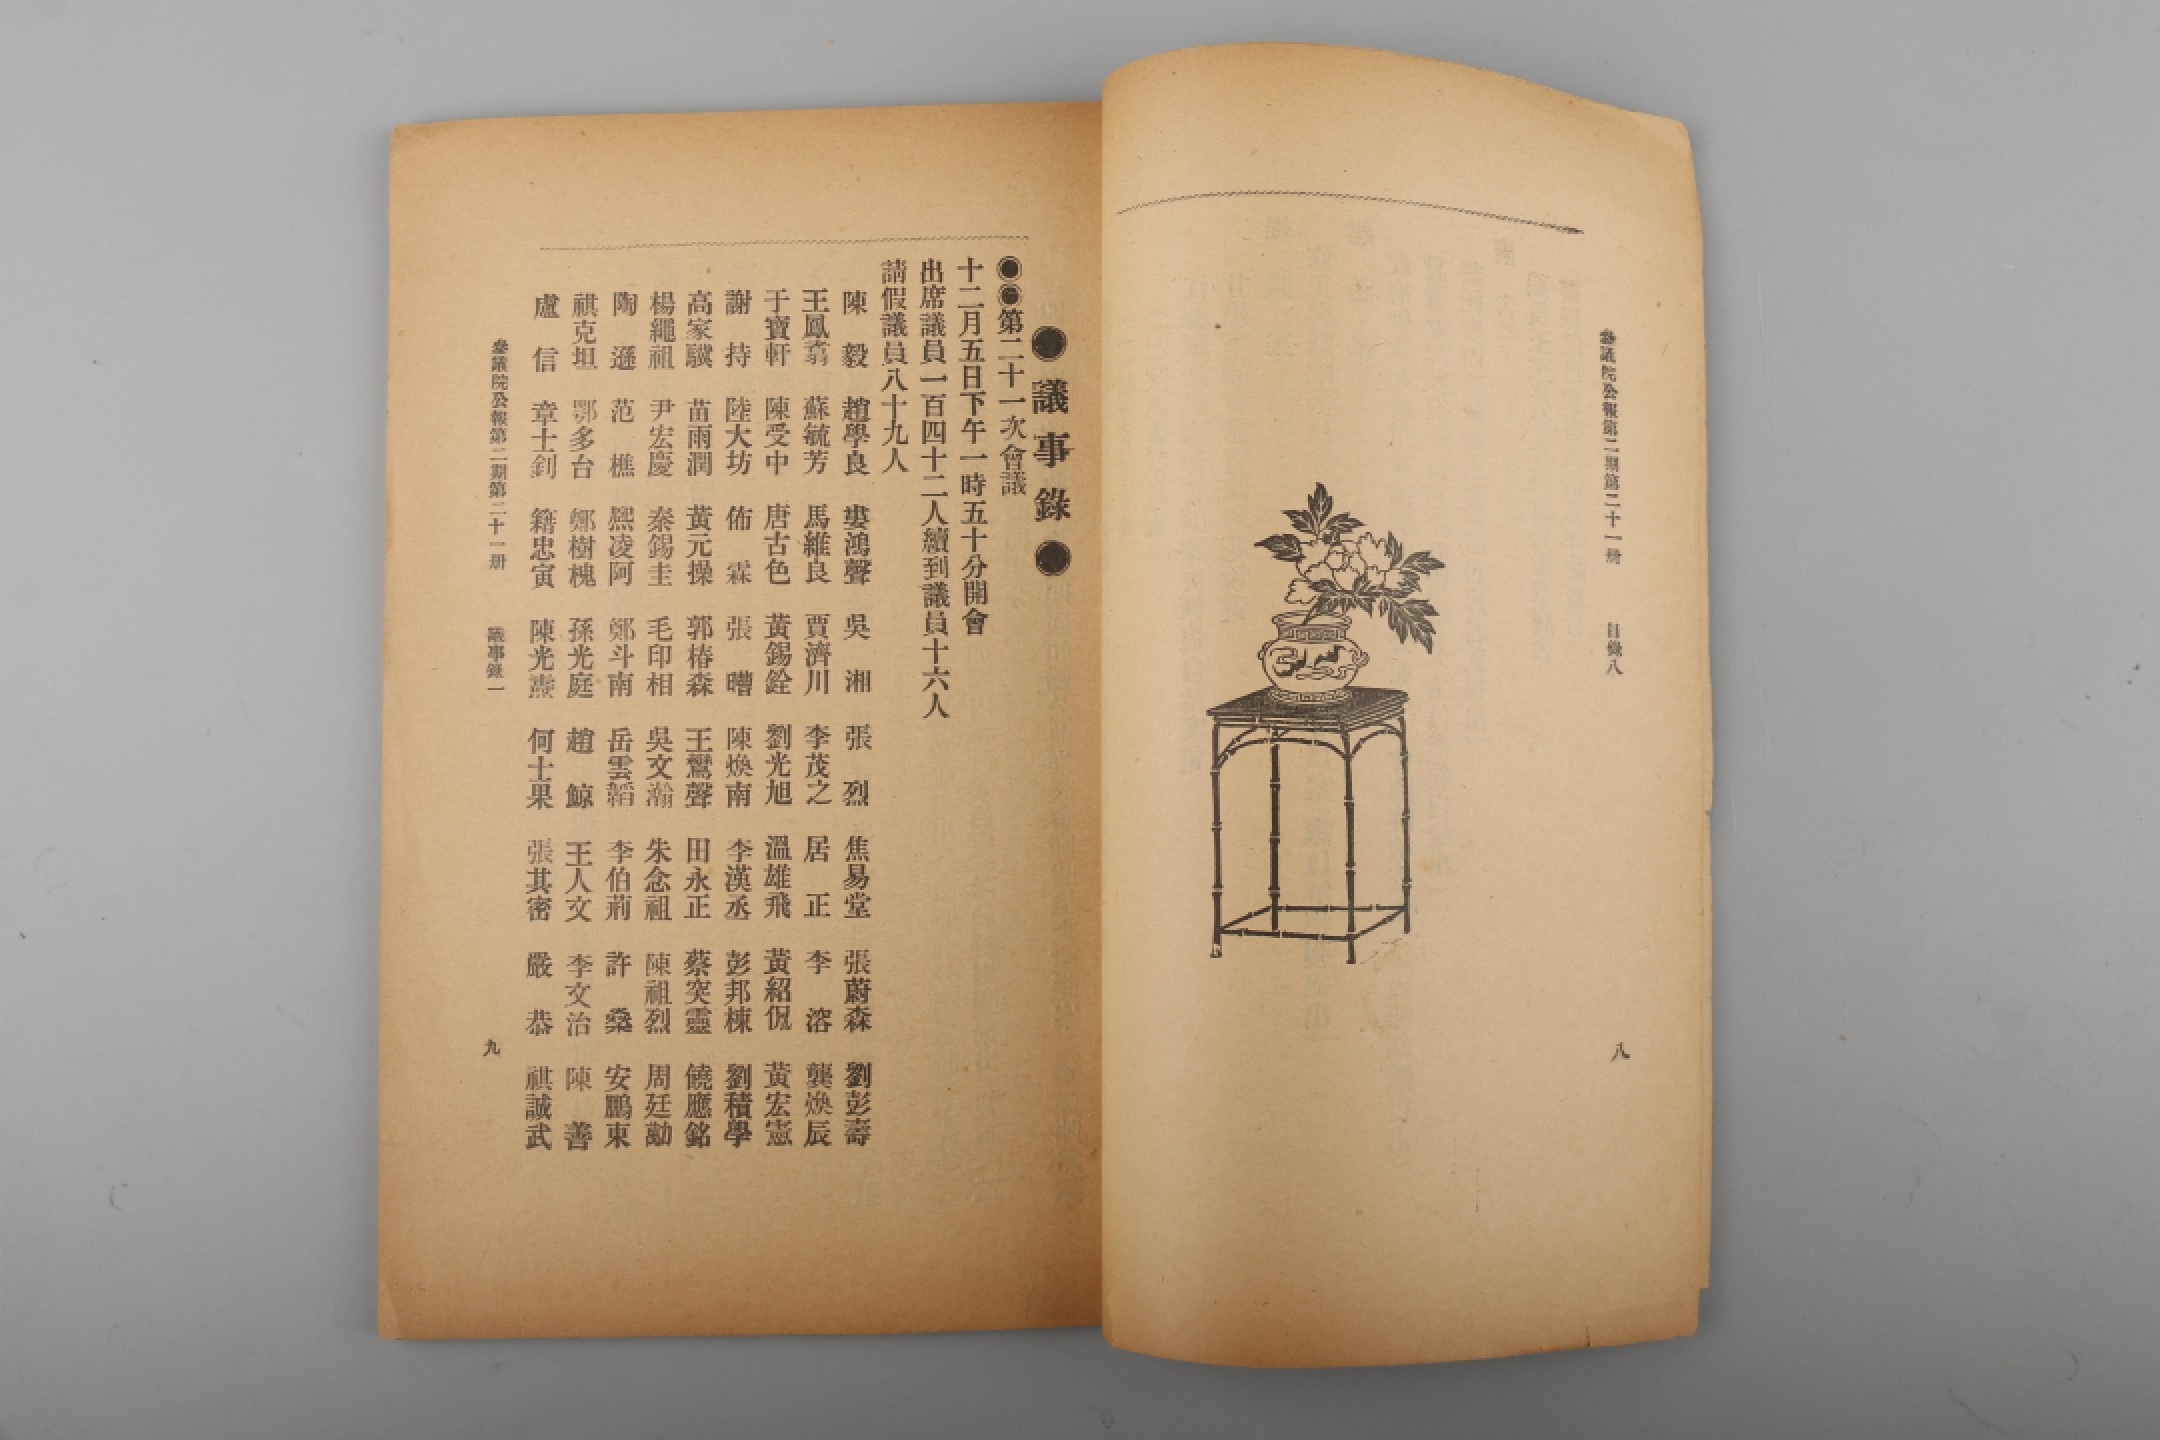 參議院公報第二期第二十一册 目錄八
八
●議事錄●
●●第二十一次會議
十二月五日下午一時五十分開會
出席議員一百四十二人續到議員十六人
請假議員八十九人
陳 毅 趙學良 婁鴻聲 吳 湘 張 烈 焦易堂 張蔚森 劉彭壽
王鳳翥 蘇毓芳 馬維良 賈濟川 李茂之 居 正 李 溶 龔煥辰
于寶軒 陳受中 唐古色 黃錫銓 劉光旭 溫雄飛 黃紹侃 黃宏憲
謝 持 陸大坊 佈 霖 張 嘈 陳煥南 李漢丞 彭邦棟 劉積學
高家驥 苗雨潤 黃元操 郭椿森 王鸞聲 田永正 蔡突靈 饒應銘
楊繩祖 尹宏慶 秦錫圭 毛印相 吳文瀚 朱念祖 陳祖烈 周廷勱
陶 遜 范 樵 熙凌阿 鄭斗南 岳雲韜 李伯荊 許 燊 安鵬東
祺克坦 鄂多台 鄭樹槐 孫光庭 趙 鯨 王人文 李文治 陳 善
盧 信 章士釗 籍忠寅 陳光燾 何士果 張其密 嚴 恭 祺誠武
參議院公報第二期第二十一册 議事錄一
九